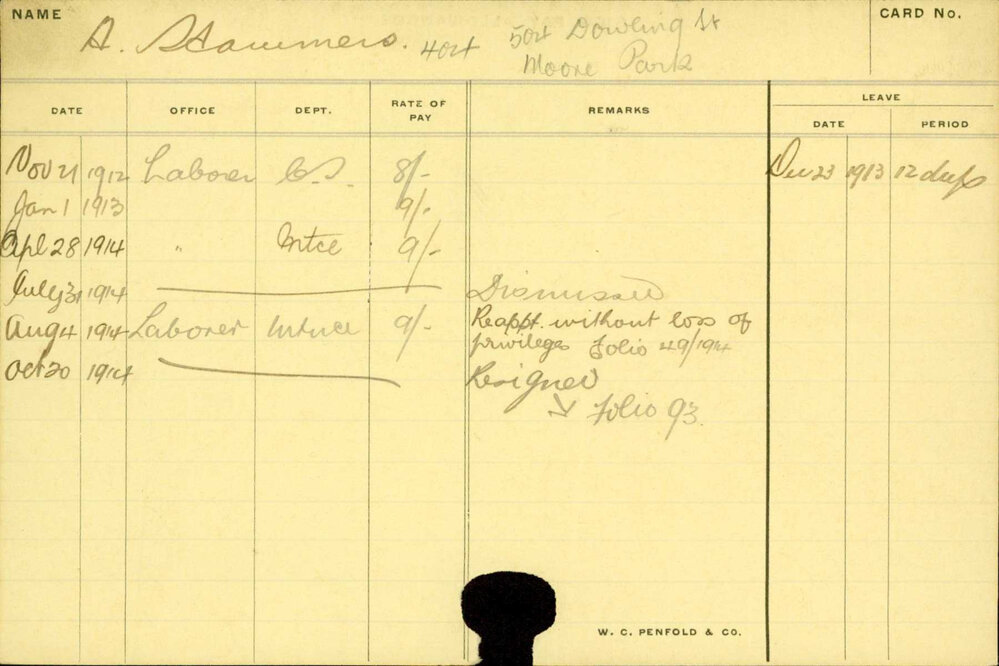 NAME A. Stammers. 4024 502 Dowling St CARD No.
Moore Park
LEAVE
DATE OFFICE DEPT. RATE OF PAY REMARKS DATE PERIOD
Nov 21 1912 Laborer C.S. 8/- Dec 23 1913 12 days
Jan 1 1913 9/-
Apl 28 1914 " Mtce 9/-
July 31 1914 Dismissed
Aug 4 1914 Laborer Mtnce 9/- Reappt. without loss of
privileges Folio 49/1914
Oct 20 1914 Resigned
Folio 93.
W. C. PENFOLD & CO.